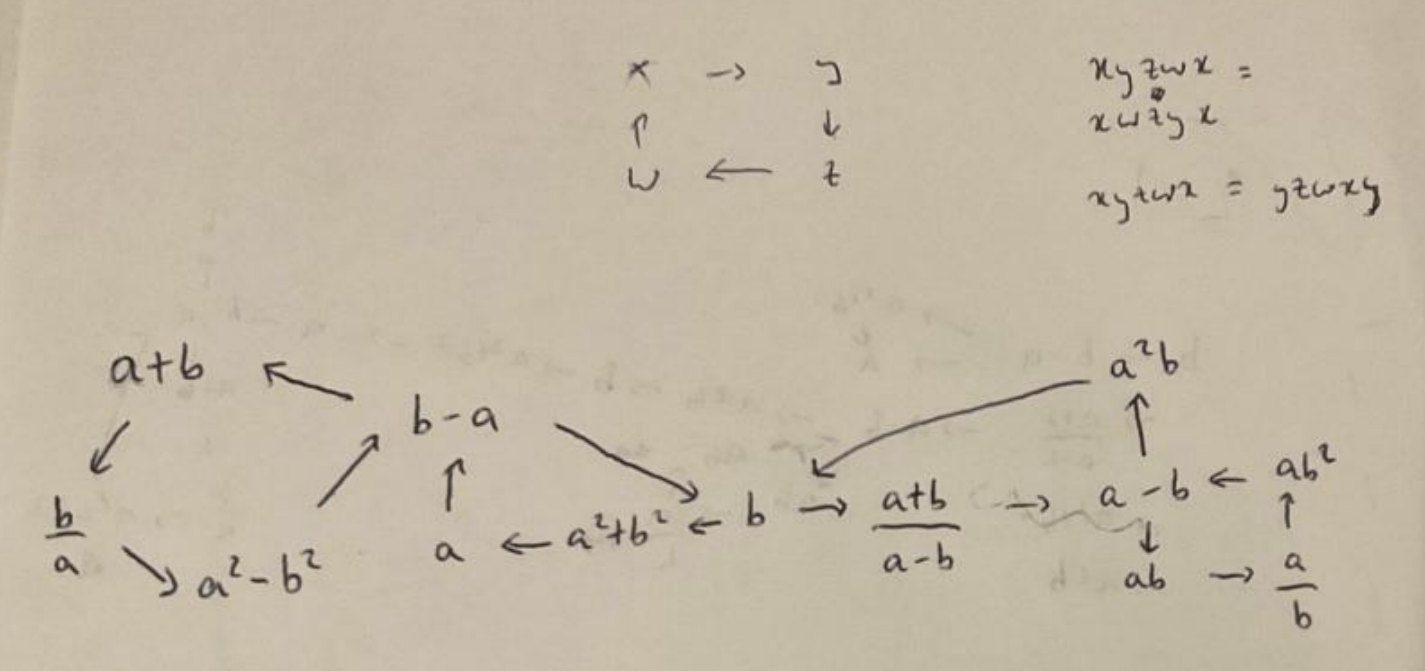 x → y
↑ ↓
w ← z
xyzwx =
xwzyx
xyzwx = yzwxy
a+b ↖ b-a ↘
↙ ↗ ↑
b/a ↘ a²-b²
a ← a²+b² ← b → (a+b)/(a-b) → a-b ← ab²
a²b
↙ ↑
↓ ↑
ab → a/b